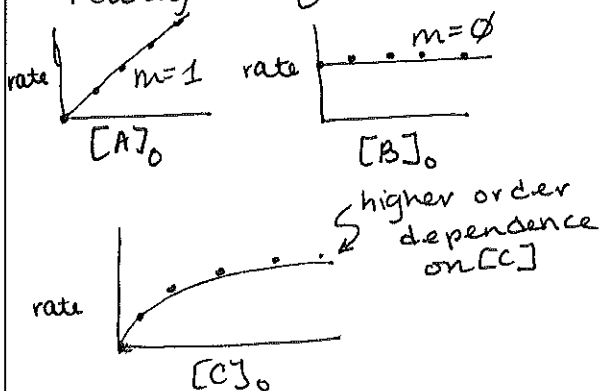 rate
m=1
[A]₀
rate
m=∅
[B]₀
higher order
dependence
on [C]
rate
[C]₀